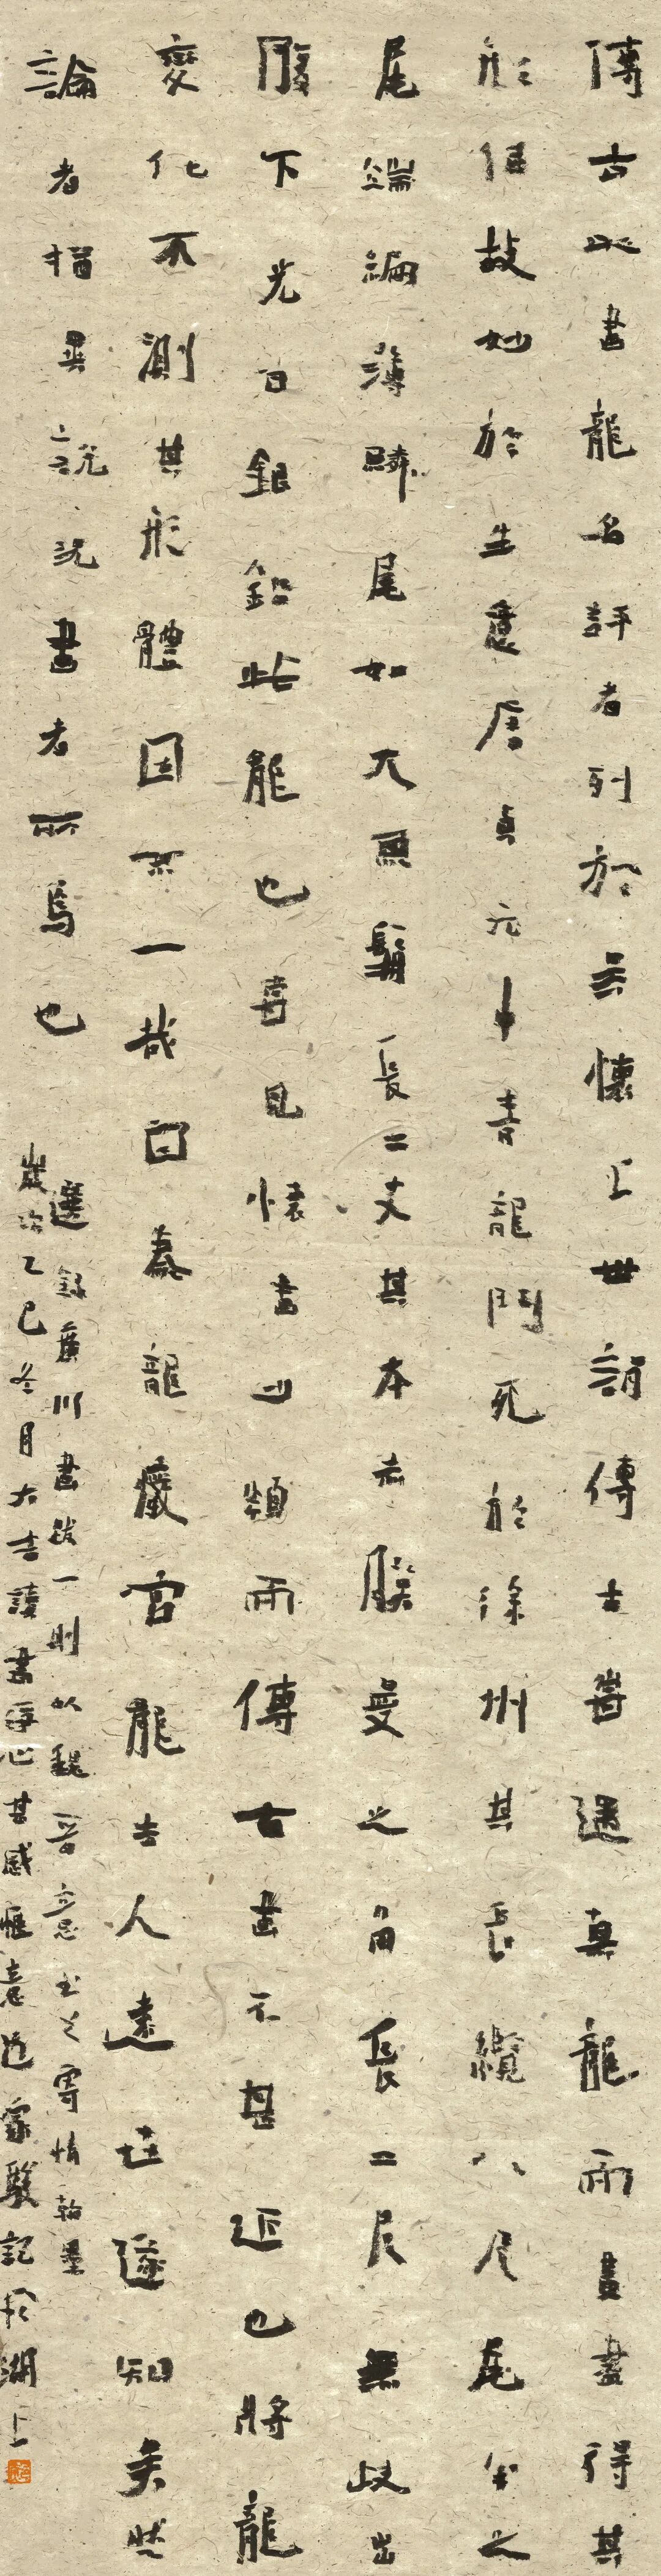 傳古以畫龍名評者列於吳懷上世謂傳古嘗遇真龍而畫盡得其
形似故妙於生意唐貞元中青龍鬥死於徐州其長纔八尺尾半之
尾端褊薄鱗尾如大魚鬚長二丈其本赤膜蒙之角長二尺無歧出
腹下光白銀鉛此龍也吾見懷畫此類而傳古畫不甚近也將龍
變化不測其形體固不一哉曰豢龍儀官龍古人遠世遂知矣然
論者指異說況畫者所為也
選錄廣川畫跋一則以魏晉意書之寄情翰墨
歲次乙巳冬月大吉讀書 心甚感愜意 家駿記於湖上